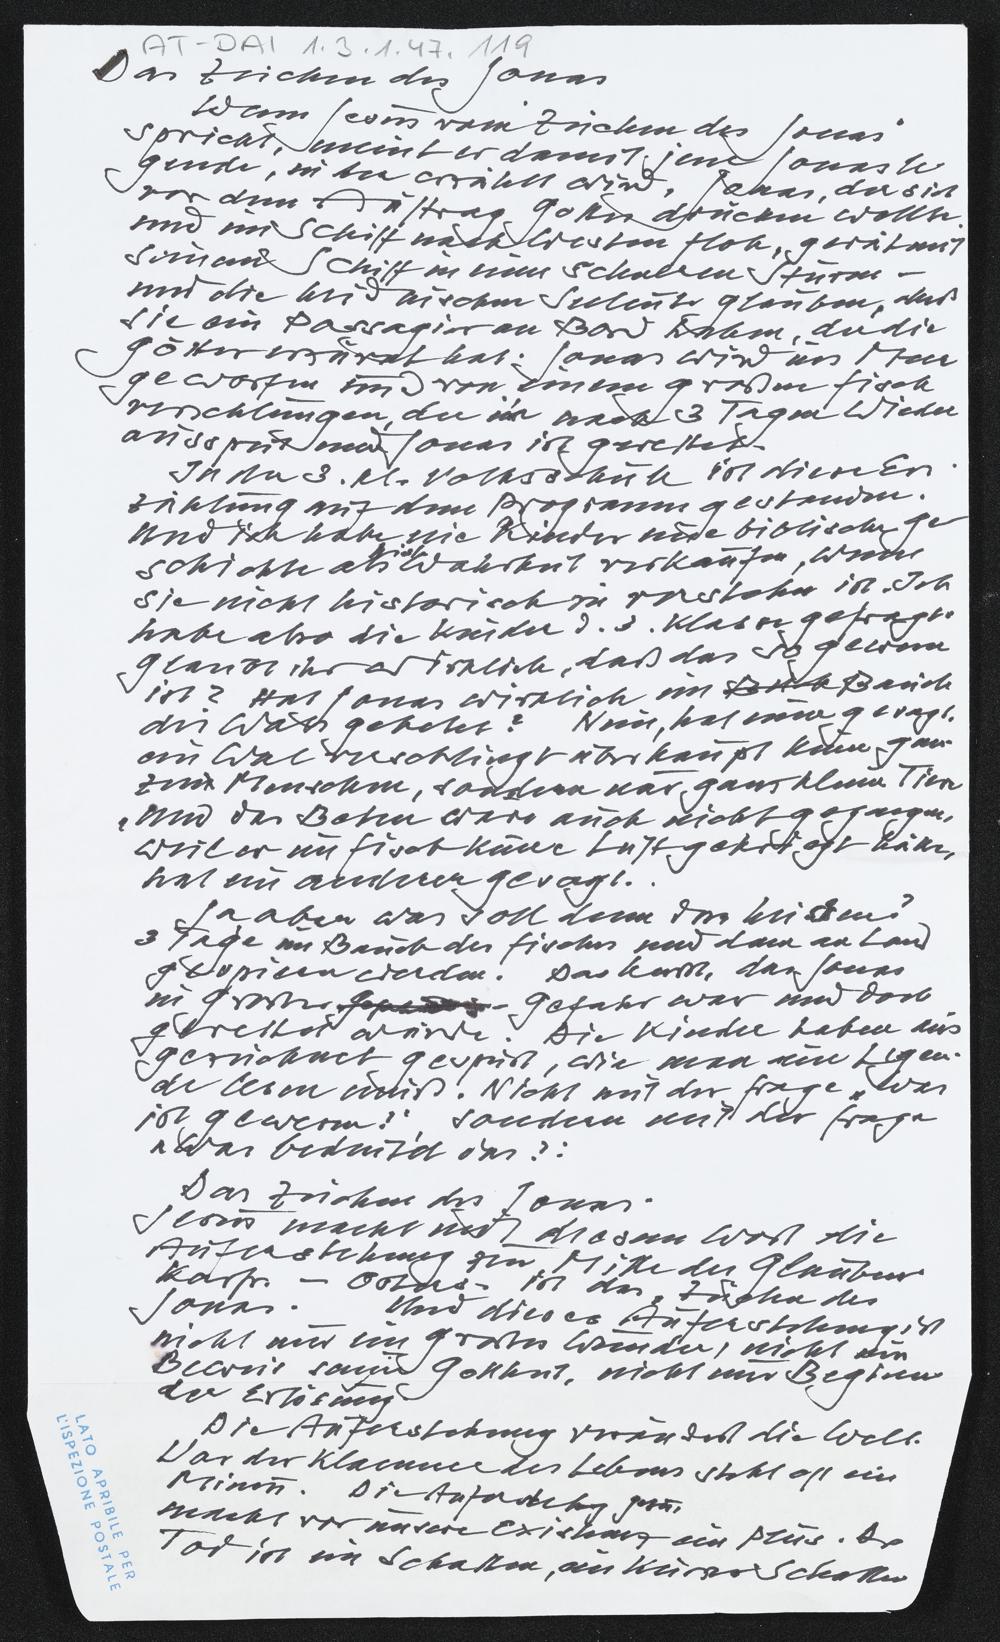 AT-DAI 1.3.1.47.119
Das Zeichen des Jonas
Wenn Jesus vom Zeichen des Jonas
spricht, meint er damit jene Jonasle
gende, in der erzählt wird, Jonas, der sich
vor dem Auftrag Gottes drücken wollte
und im Schiff nach Westen floh, gerät mit
seinem Schiff in einen schweren Sturm –
und die heidnischen Seeleute glauben, daß
sie ein Passagier an Bord haben, der die
Götter erzürnt hat: Jonas wird ins Meer
geworfen und von einem großen Fisch
verschlungen, der ihn nach 3 Tagen wieder
ausspeit und Jonas ist gerettet.
In der 3. Kl. Volksschule ist diese Er
zählung auf dem Programm gestanden.
Und ich habe nie Kinder eine biblische Ge
schichte als Wahrheit verkaufen, wenn
sie nicht historisch zu verstehen ist. Ich
habe also die Kinder d. 3. Klasse gefragt:
Glaubt ihr wirklich, daß das so gewesen
ist? Hat Jonas wirklich im Bauch
des Wals gebetet? Nein, hat einer gesagt.
ein Wal verschlingt überhaupt keine gan
zen Menschen, sondern nur ganz kleine Tiere
Und das Beten wäre auch nicht gegangen,
weil er im Fisch keine Luft gekriegt hätte,
hat ein anderer gesagt.
Ja aber was soll denn das heißen?
3 Tage im Bauch des Fisches und dann an Land
gespieen werden. Das heißt, daß Jonas
in großer Gefahr war und doch
gerettet wurde. Die Kinder haben aus
gezeichnet gespürt, wie man eine Legen-
de lesen muß. Nicht mit der Frage „was
ist gewesen?", sondern mit der Frage
„Was bedeutet das?":
Das Zeichen des Jonas.
Jesus macht mit diesem Wort die
Auferstehung zur Mitte des Glaubens
Karfr. – Ostern – ist das „Zeichen des
Jonas. Und diese Auferstehung ist
nicht nur ein großes Wunder, nicht nur
Beweis seiner Gottheit, nicht nur Beginn
der Erlösung
Die Auferstehung verändert die Welt.
Vor der Klammer des Lebens steht oft ein
Minus. Die Auferstehung Jesu
macht vor unsere Existenz ein Plus. Der
Tod ist ein Schatten, ein kurzer Schatten
LATO APRIBILE PER
L'ISPEZIONE POSTALE